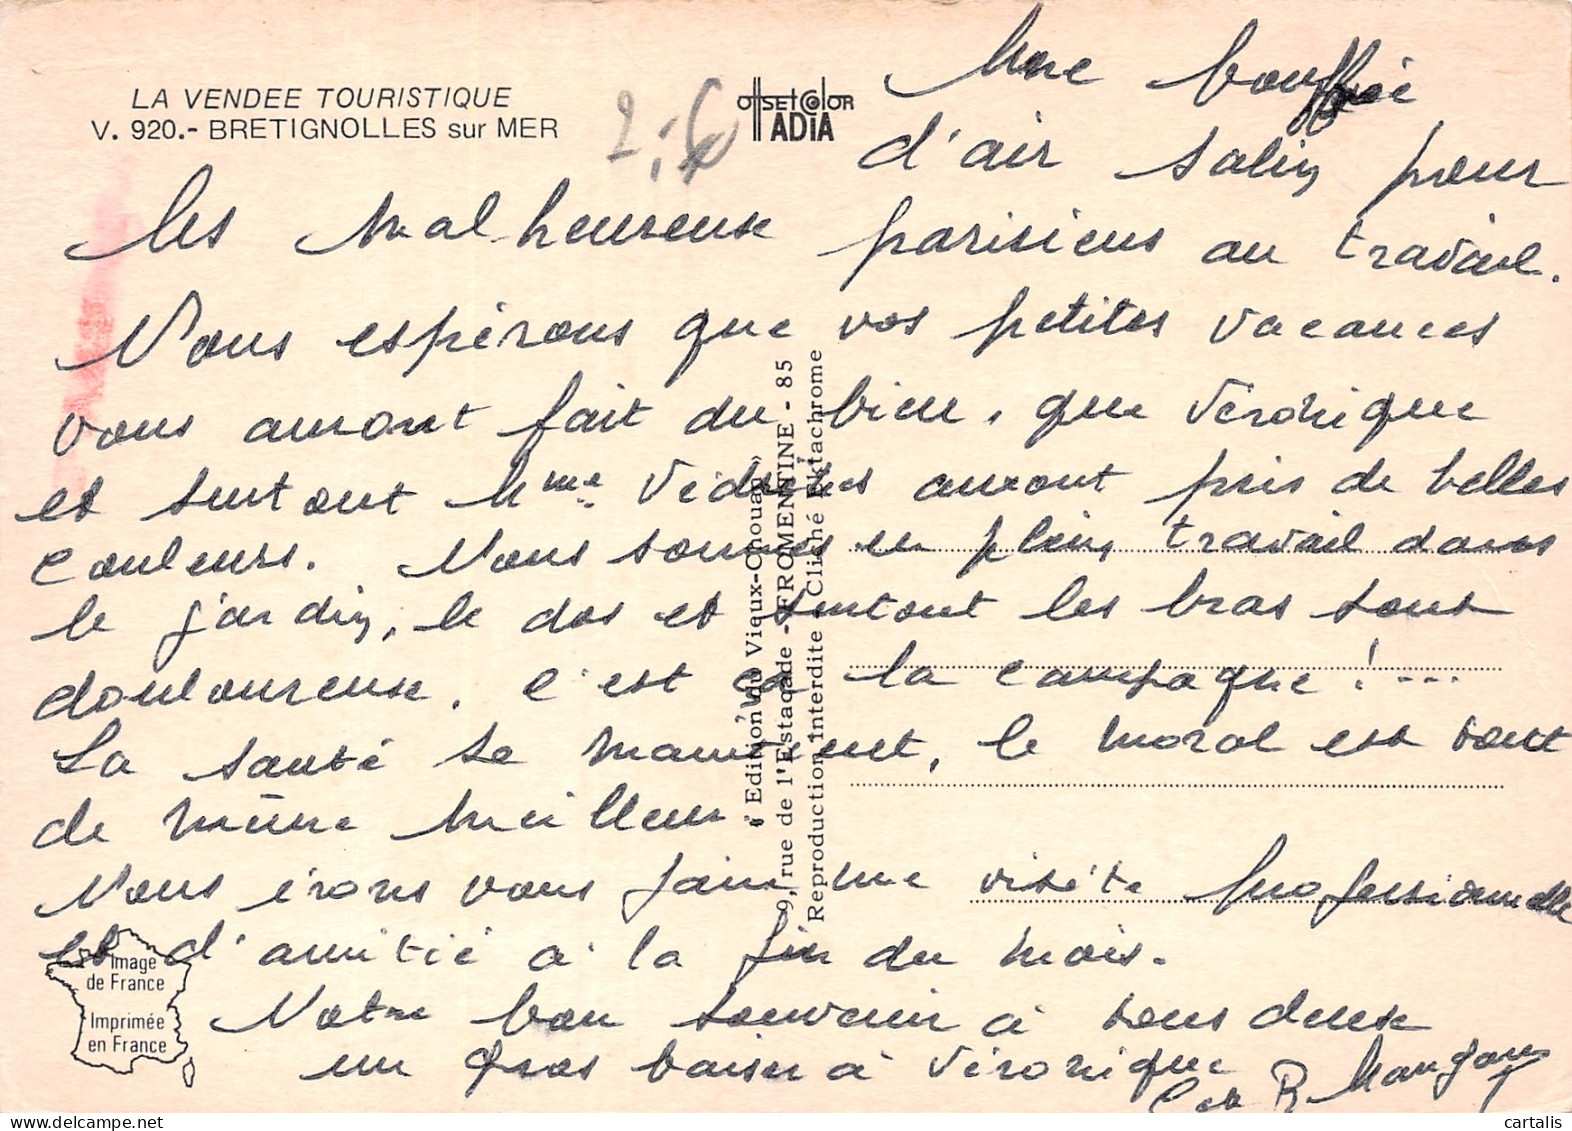 LA VENDEE TOURISTIQUE
V. 920.- BRETIGNOLLES sur MER
offset color
ADIA
2,60
Une bouffée
d'air salin pour
les malheureux parisiens au travail.
Nous espérons que vos petites vacances
vous auront fait du bien, que Véronique
et surtout Mme auront pris de belles
couleurs. Nous sommes en plein travail dans
le jardin, le dos et surtout les bras sont
douloureux. C'est ça la campagne !...
La santé se maintient, le moral est tout
de même meilleur.
Nous irons vous faire une visite professionnelle
et d'amitié à la fin du mois.
Notre bon souvenir à tous deux
un gros baiser à Véronique
"Edition du Vieux-Chouan"
9, rue de l'Estacade - FROMENTINE - 85
Reproduction interdite - Cliché Ektachrome
Image
de France
Imprimée
en France
cartalis
www.delcampe.net